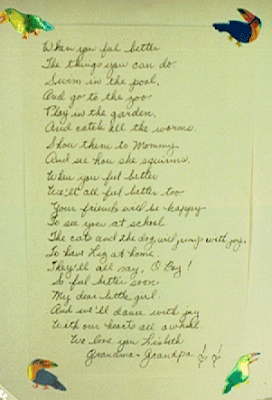 When you feel better
The things you can do
Swim in the pool,
And go to the zoo
Play in the garden,
And catch all the worms.
Show them to Mommy,
And see how she squirms.
When you feel better
We'll all feel better too
Your friends will be happy
To see you at school
The cats and the dog will jump with joy,
To have Liz at home
They'll all say, O Boy!
So feel better soon
My dear little girl
And we'll dance with joy
With our hearts all awhirl.
We love you Lisbeth
Grandma + Grandpa